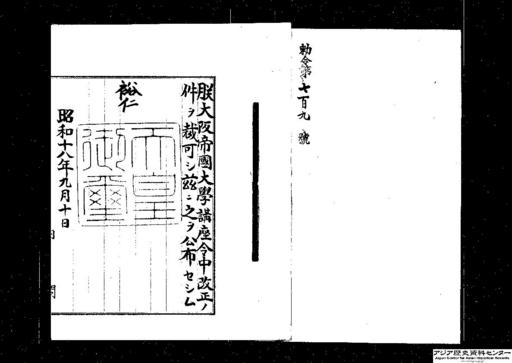 勅令第七百九號
朕大阪帝國大學講座令中改正ノ
件ヲ裁可シ茲ニ之ヲ公布セシム
裕仁
天皇
御璽
昭和十八年九月十日
内閣
アジア歴史資料センター
Japan Center for Asian Historical Records